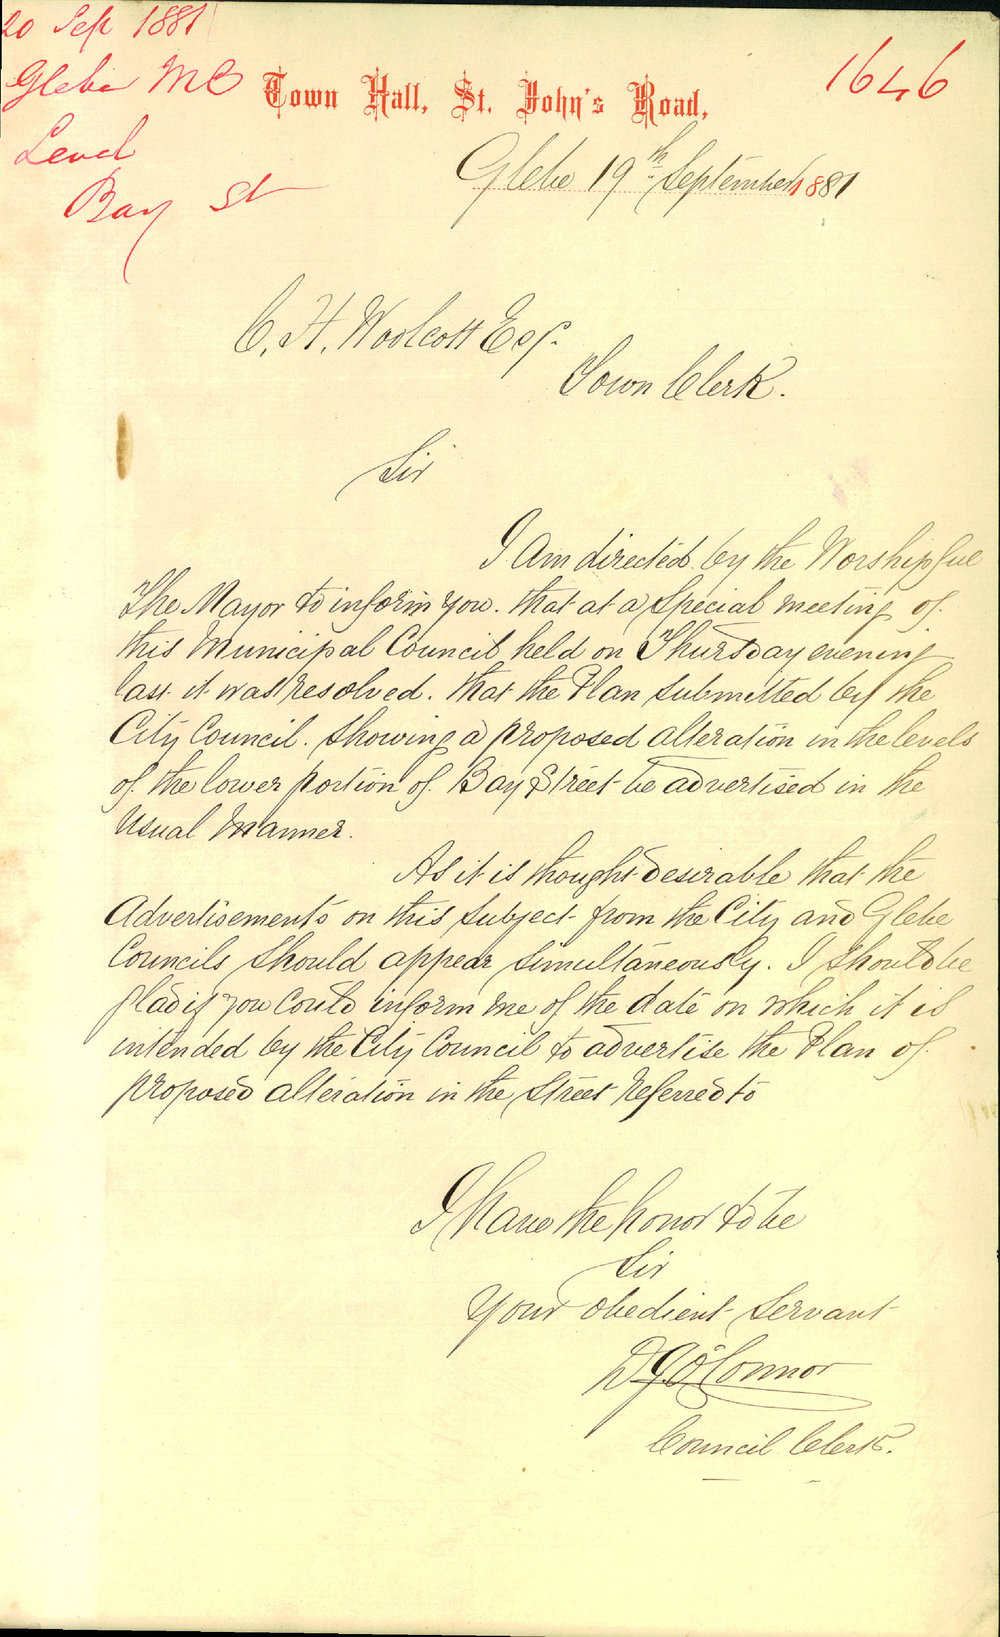 20 Sep 1881
Glebe MC
Level
Bay St
1646
Town Hall, St. John's Road,
Glebe 19th September 1881
C. H. Woolcott Esq.
Town Clerk.
Sir
I am directed by the Worshipful
The Mayor to inform you. that at a Special meeting of
this Municipal Council held on Thursday evening
last it was resolved. that the Plan submitted by the
City Council. showing a proposed alteration in the levels
of the lower portion of Bay Street be advertised in the
Usual Manner.
As it is thought desirable that the
Advertisements on this subject from the City and Glebe
Councils should appear simultaneously. I should be
glad if you could inform me of the date on which it is
intended by the City Council to advertise the Plan of
proposed alteration in the Street referred to
I have the honor to be
Sir
Your obedient Servant
D G O'Connor
Council Clerk.